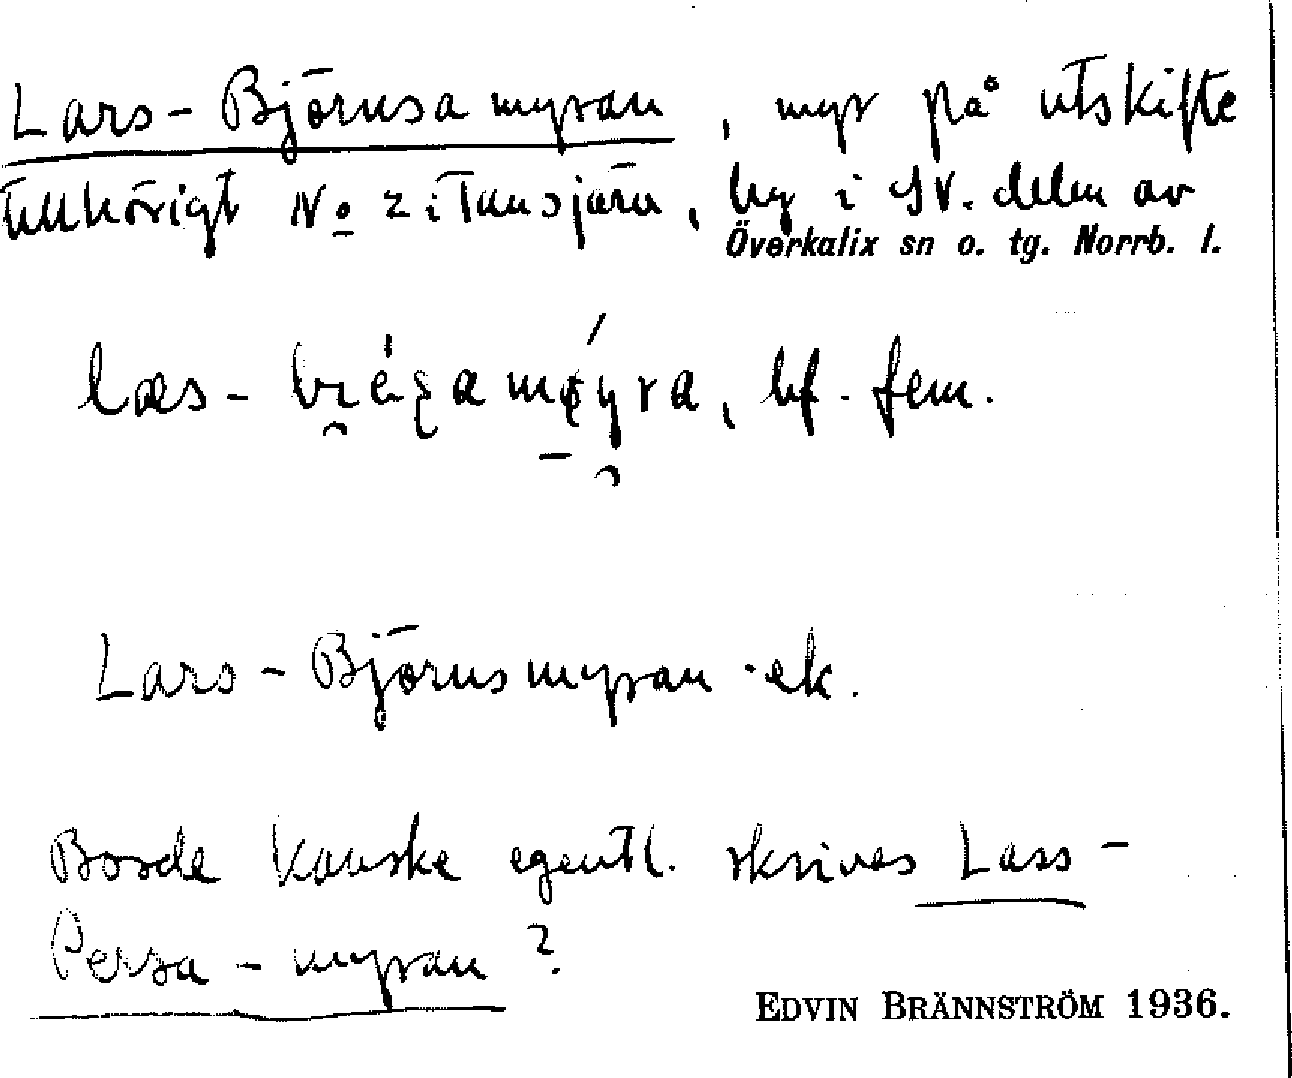 Lars-Björnsamyran, myr på utskifte
tillhörigt No 2 i Tansjärn, by i SV. delen av
Överkalix sn o. tg. Norrb. l.
bf. fem.
Lars-Björnsmyran ek.
Borde kanske egentl. skrives Lass-
Persa-myran?
EDVIN BRÄNNSTRÖM 1936.